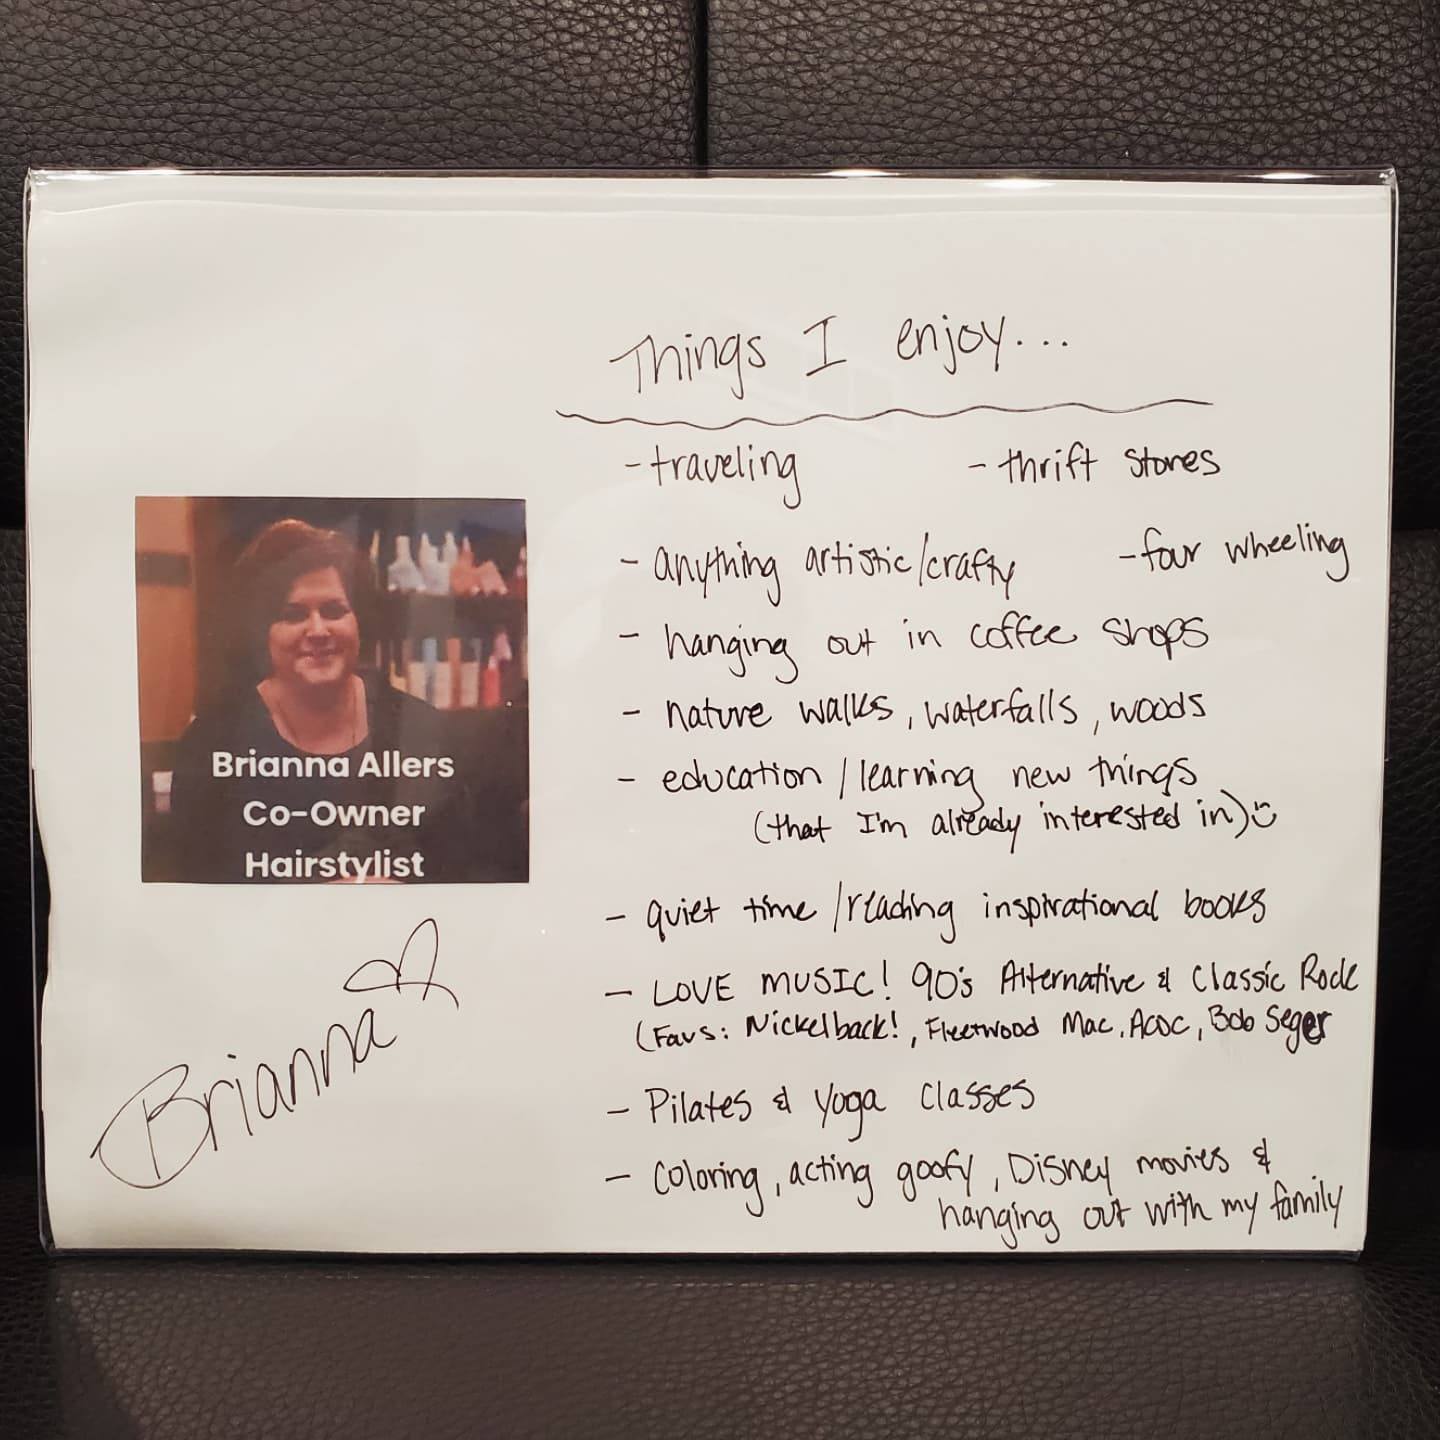 Things I enjoy...
- traveling - thrift stores
- anything artistic/crafty - four wheeling
- hanging out in coffee shops
- nature walks, waterfalls, woods
- education / learning new things
(that I'm already interested in)
- quiet time / reading inspirational books
- LOVE MUSIC! 90's Alternative & Classic Rock
(Favs: Nickelback!, Fleetwood Mac, ACDC, Bob Seger
- Pilates & Yoga Classes
- Coloring, acting goofy, Disney movies &
hanging out with my family
Brianna Allers
Co-Owner
Hairstylist
Brianna